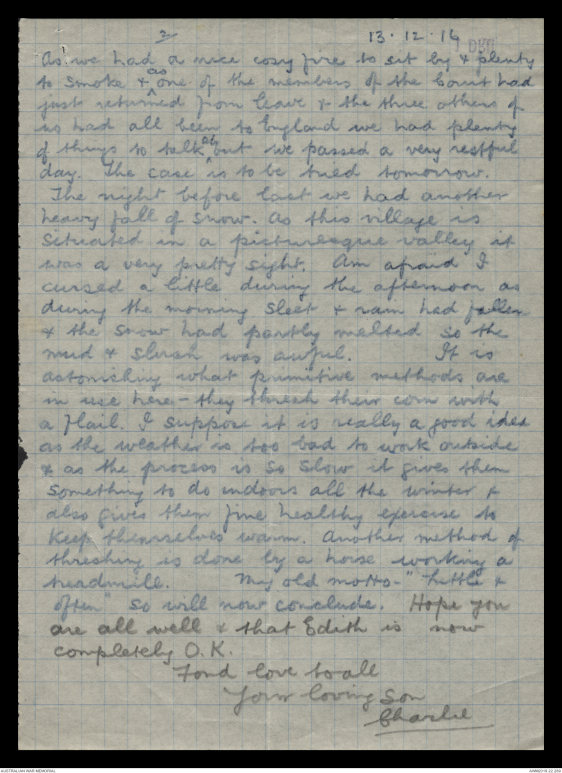 2
13.12.16
DEC
As we had a nice cosy fire to sit by & plenty
to smoke & as one of the members of the Court had
just returned from leave & the three others of
us had all been to England we had plenty
of things to talk abt but we passed a very restful
day. The case is to be tried tomorrow.
The night before last we had another
heavy fall of snow. As this village is
situated in a picturesque valley it
was a very pretty sight. Am afraid I
cursed a little during the afternoon as
during the morning sleet & rain had fallen
& the snow had partly melted so the
mud & slush was awful. It is
astonishing what primitive methods are
in use here - they thresh their corn with
a flail. I suppose it is really a good idea
as the weather is too bad to work outside
& as the process is so slow it gives them
something to do indoors all the winter &
also gives them fine healthy exercise to
keep themselves warm. Another method of
threshing is done by a horse working a
treadmill. My old motto - "little &
often" so will now conclude. Hope you
are all well & that Edith is now
completely O.K.
Fond love to all
Your loving Son
Charlie
AUSTRALIAN WAR MEMORIAL